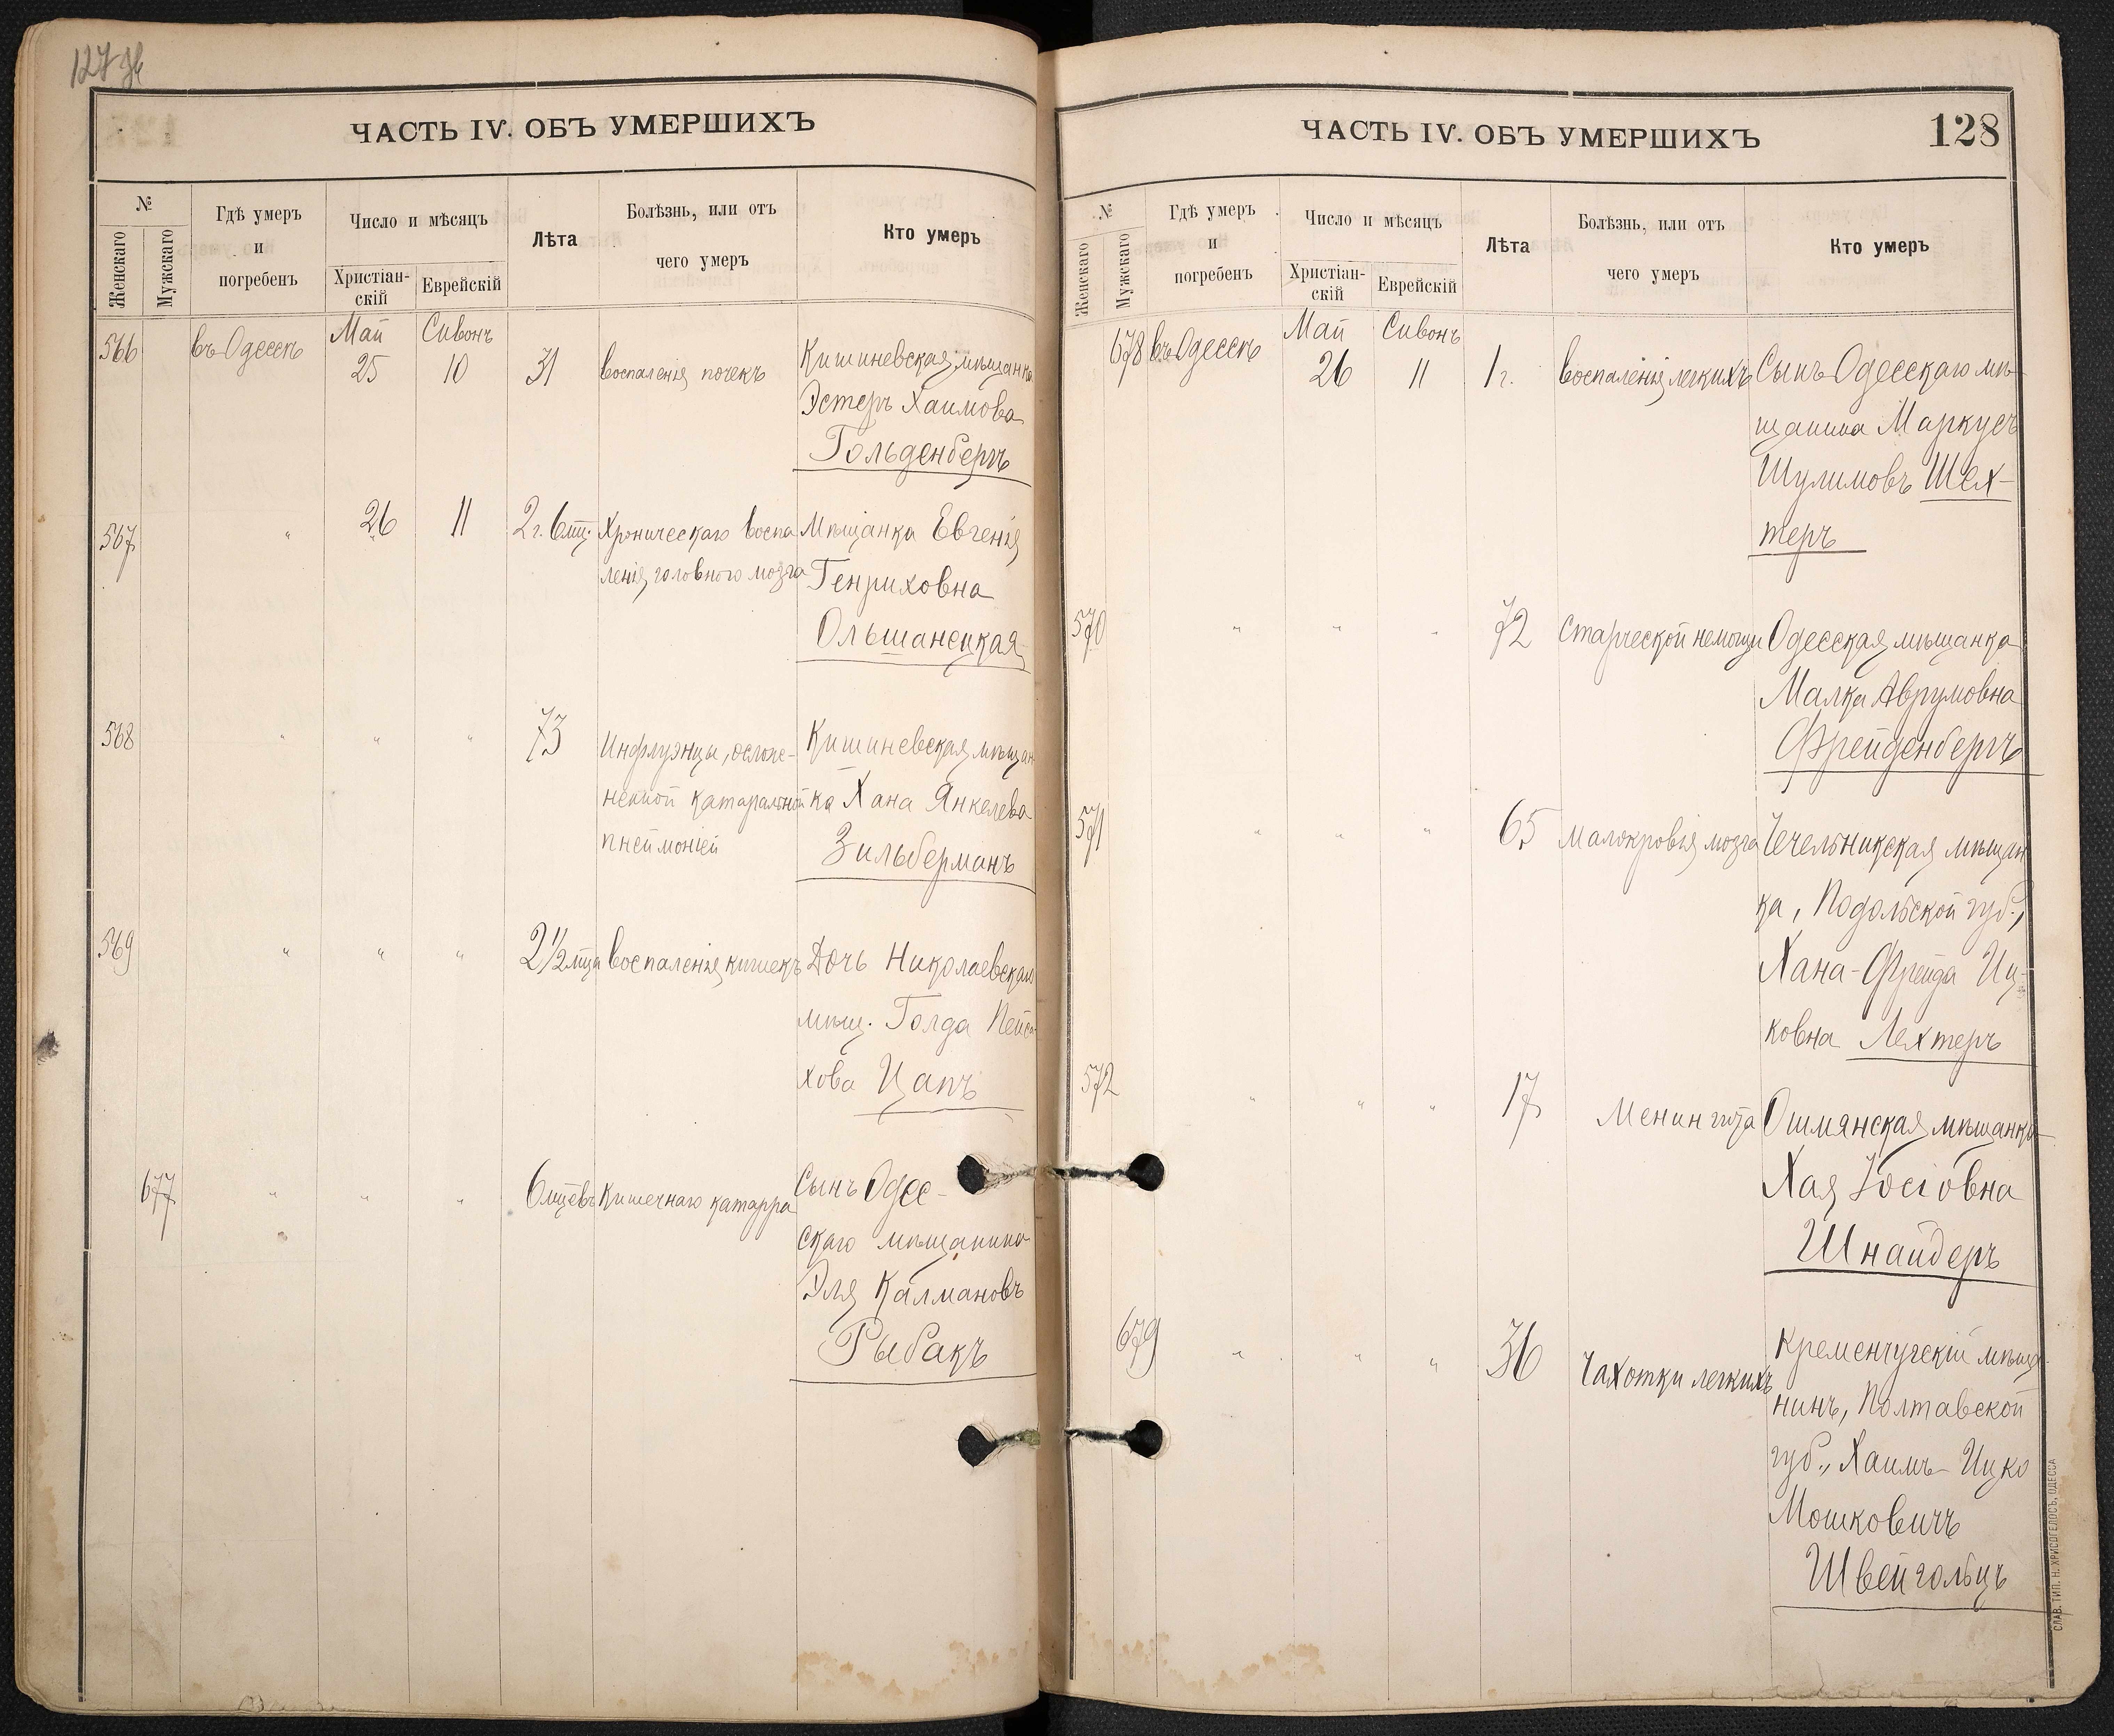 127 об
ЧАСТЬ IV. ОБЪ УМЕРШИХЪ
№
Женскаго
Мужскаго
Гдѣ умеръ
и
погребенъ
Число и мѣсяцъ
Христіан-
скій
Еврейскій
Лѣта
Болѣзнь, или отъ
чего умеръ
Кто умеръ
566
въ Одессѣ
Май
25
Сивонъ
10
31
воспаленія почекъ
Кишиневская мѣщанка
Эстеръ Хаимова
Гольденбергъ
567
"
26
11
2 г. 6 мц.
Хроническаго воспа
ленія головного мозга
Мѣщанка Евгенія
Генриховна
Ольшанецкая
568
" " "
73
Инфлуэнцы, осложе-
ненной катаральной
пнеймоніей
Кишиневская мѣщан
ка Хана Янкелева
Зильберманъ
569
" " "
2½ мца
воспаленія кишекъ
Дочь Николаевскаго
мѣщ. Голда Пейса
хова Цапъ
677
" " "
6 мцевъ
Кишечнаго катарра
Сынъ Одес-
скаго мѣщанина
Эля Калмановъ
Рыбакъ
ЧАСТЬ IV. ОБЪ УМЕРШИХЪ
128
№
Женскаго
Мужскаго
Гдѣ умеръ
и
погребенъ
Число и мѣсяцъ
Христіан-
скій
Еврейскій
Лѣта
Болѣзнь, или отъ
чего умеръ
Кто умеръ
678
въ Одессѣ
Май
26
Сивонъ
11
1 г.
воспаленія легкихъ
Сынъ Одесскаго мѣ-
щанина Маркусъ
Шулимовъ Шех-
теръ
570
" " "
72
Старческой немощи
Одесская мѣщанка
Малка Аврумовна
Фрейденбергъ
571
" " "
65
Малокровія мозга
Чечельникская мѣщан
ка, Подольской губ.,
Хана-Фрейда Иц-
ковна Лехтеръ
572
" " "
17
Менингита
Ошмянская мѣщанка
Хая Іосіовна
Шнайдеръ
679
" " "
36
Чахотки легкихъ
Кременчугскій мѣща
нинъ, Полтавской
губ., Хаимъ-Ицко
Мошковичъ
Швейгольцъ
СЛАВ. ТИП. Н. ХРИСОГЕЛОСЪ, ОДЕССА